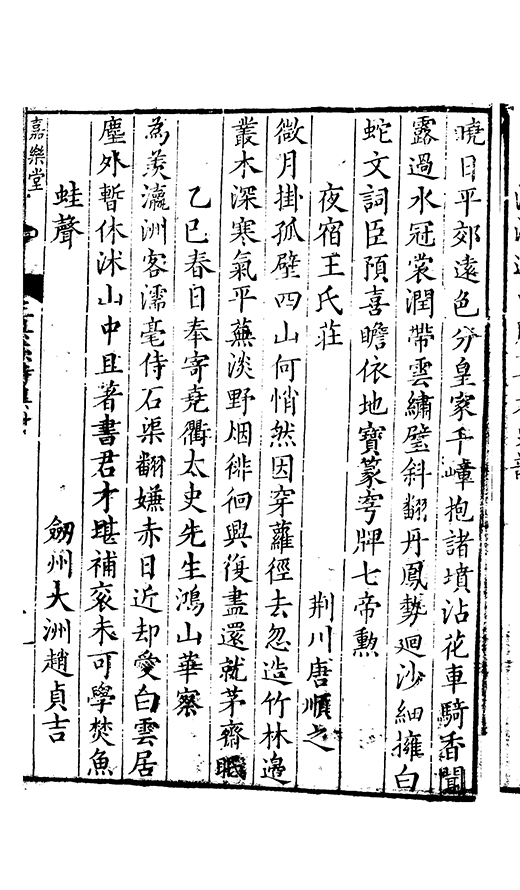 曉日平郊遠色分皇家千嶂抱諸墳沾花車騎香聞
露過水冠裳潤帶雲繡壁斜翻丹鳳勢廻沙細擁白
蛇文詞臣預喜瞻依地寶篆穹牌七帝勲
夜宿王氏莊
荆川唐順之
微月掛孤壁四山何悄然因穿蘿徑去忽造竹林邊
叢木深寒氣平蕪淡野烟徘徊興復盡還就茅齋眠
乙巳春日奉寄堯衢太史先生鴻山華察
為羨瀛洲客濡毫侍石渠翻嫌赤日近却愛白雲居
塵外暫休沐山中且著書君才堪補衮未可學焚魚
蛙聲
劒州大洲趙貞吉
嘉樂堂